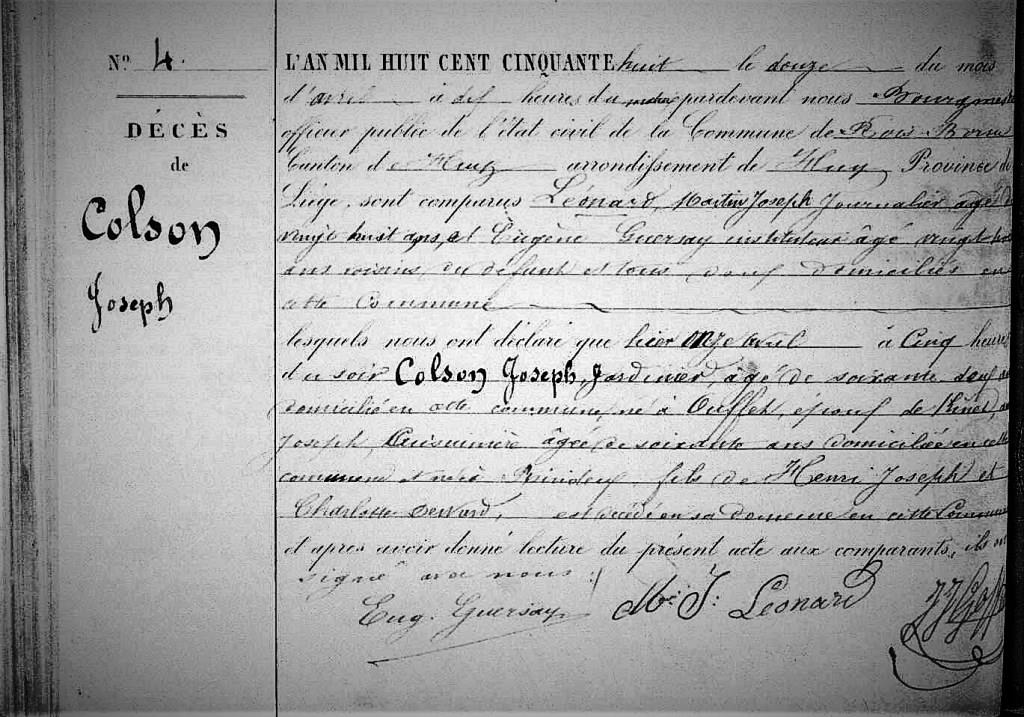 N° 4.
DÉCÈS
de
Colson
Joseph
L'AN MIL HUIT CENT CINQUANTE huit le douze du mois
d'avril à dix heures du pardevant nous Bourgmestre
officier public de l'état civil de la Commune de Bois-Borsu
Canton d arrondissement de Huy Province de
Liége, sont comparus Léonard, Martin Joseph Journalier âgé de
vingt huit ans, et Eugène Guersay instituteur âgé vingt
ans voisins du défunt et tous deux domiciliés en
cette Commune
lesquels nous ont déclaré que hier onze avril à Cinq heures
du soir Colson Joseph, Jardinier, âgé de soixante
domicilié en cette commune, né à Ouffet, époux de
Joseph, Cuisinière âgée de soixante ans domiciliée en cette
commune et née à fils de Henri Joseph et
Charlotte Servard, est décédé en sa demeure en cette Commune
et après avoir donné lecture du présent acte aux comparants, ils ont
signé avec nous
Eug. Guersay Mn. J: Léonard